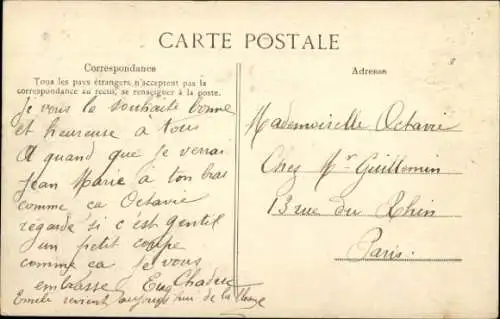 CARTE POSTALE
Correspondance
Tous les pays étrangers n'acceptent pas la
correspondance au recto, se renseigner à la poste.
Je vous le souhaite bonne
et heureuse à tous
A quand que je verrai
Jean Marie à ton bras
comme ça Octavie
regarde si c'est gentil
un petit coupe
comme ça je vous
embrasse Eug Chaduc
Emile revient aujourd'hui de la
Adresse
Mademoiselle Octavie
Chez Mr Guillemin
13 rue du Rhin
Paris.